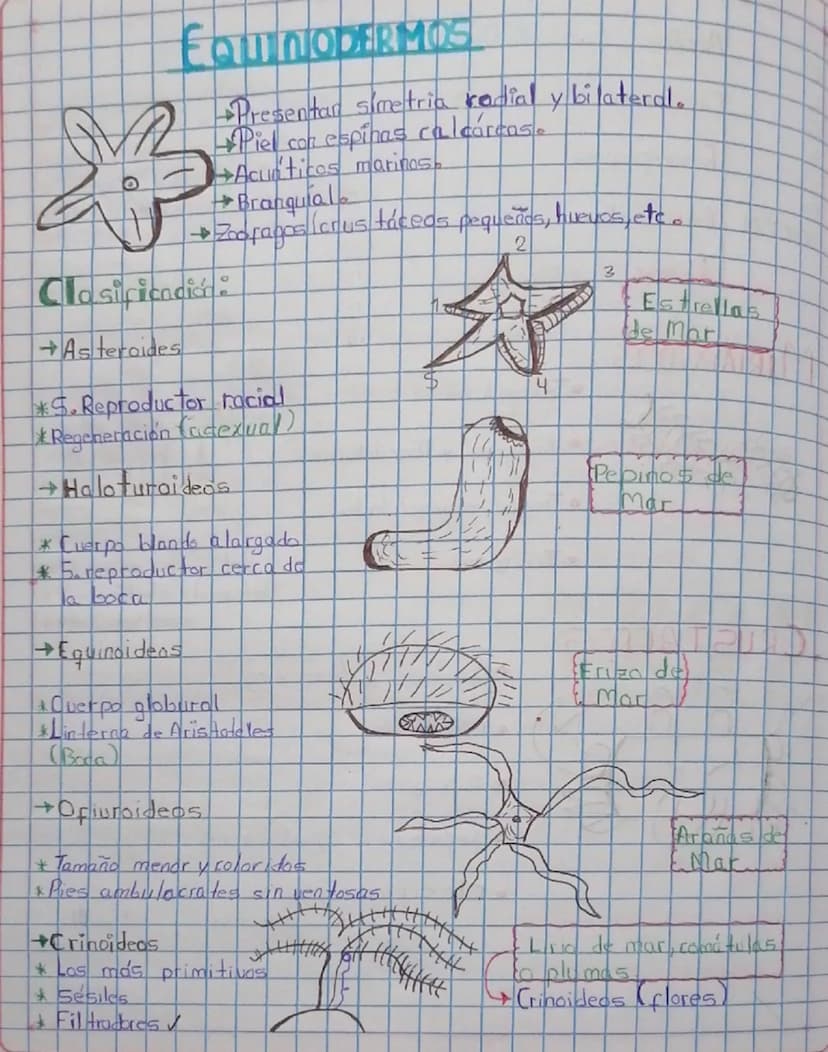 EQUINODERMOS
→Presentan simetria radial y bilateral.
→Piel con espinas calcáreas.
→Acuáticos marinos.
→Branquial.
→Zoofagos (crustáceos pequeños, huevos, etc.
Clasificación:
1
2
3
4
5
Estrellas
de Mar
→Asteroides
*S. Reproductor racial
*Regeneración (asexual)
→Holoturoideos
Pepinos de
Mar
* Cuerpo blando alargado
* S. reproductor cerca de
la boca
→Equinoideos
Erizo de
Mar
*Cuerpo globural
*Linterna de Aristoteles
(Boca)
→Ofiuroideos
Arañas de
Mar
* Tamaño menor y coloridos
* Pies ambulacrales sin ventosas
→Crinoideos
* Los más primitivos
* Sésiles
* Filtradores ✓
de mar, comátulas
o plumas
→Crinoideos (flores)